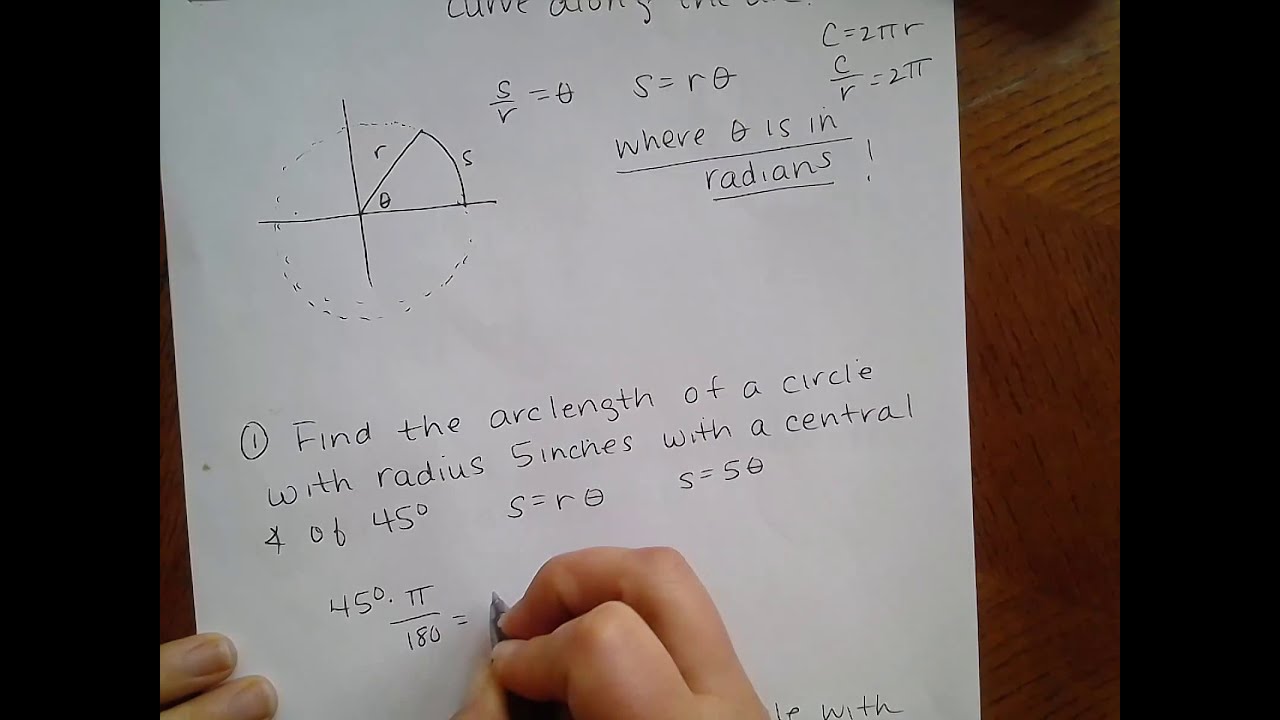 curve along the arc.
C=2πr
s/r = θ
s=rθ
c/r = 2π
where θ is in
radians!
r
s
θ
① Find the arclength of a circle
with radius 5 inches with a central
∡ of 45°
s=rθ
s=5θ
45° · π/180 =
with